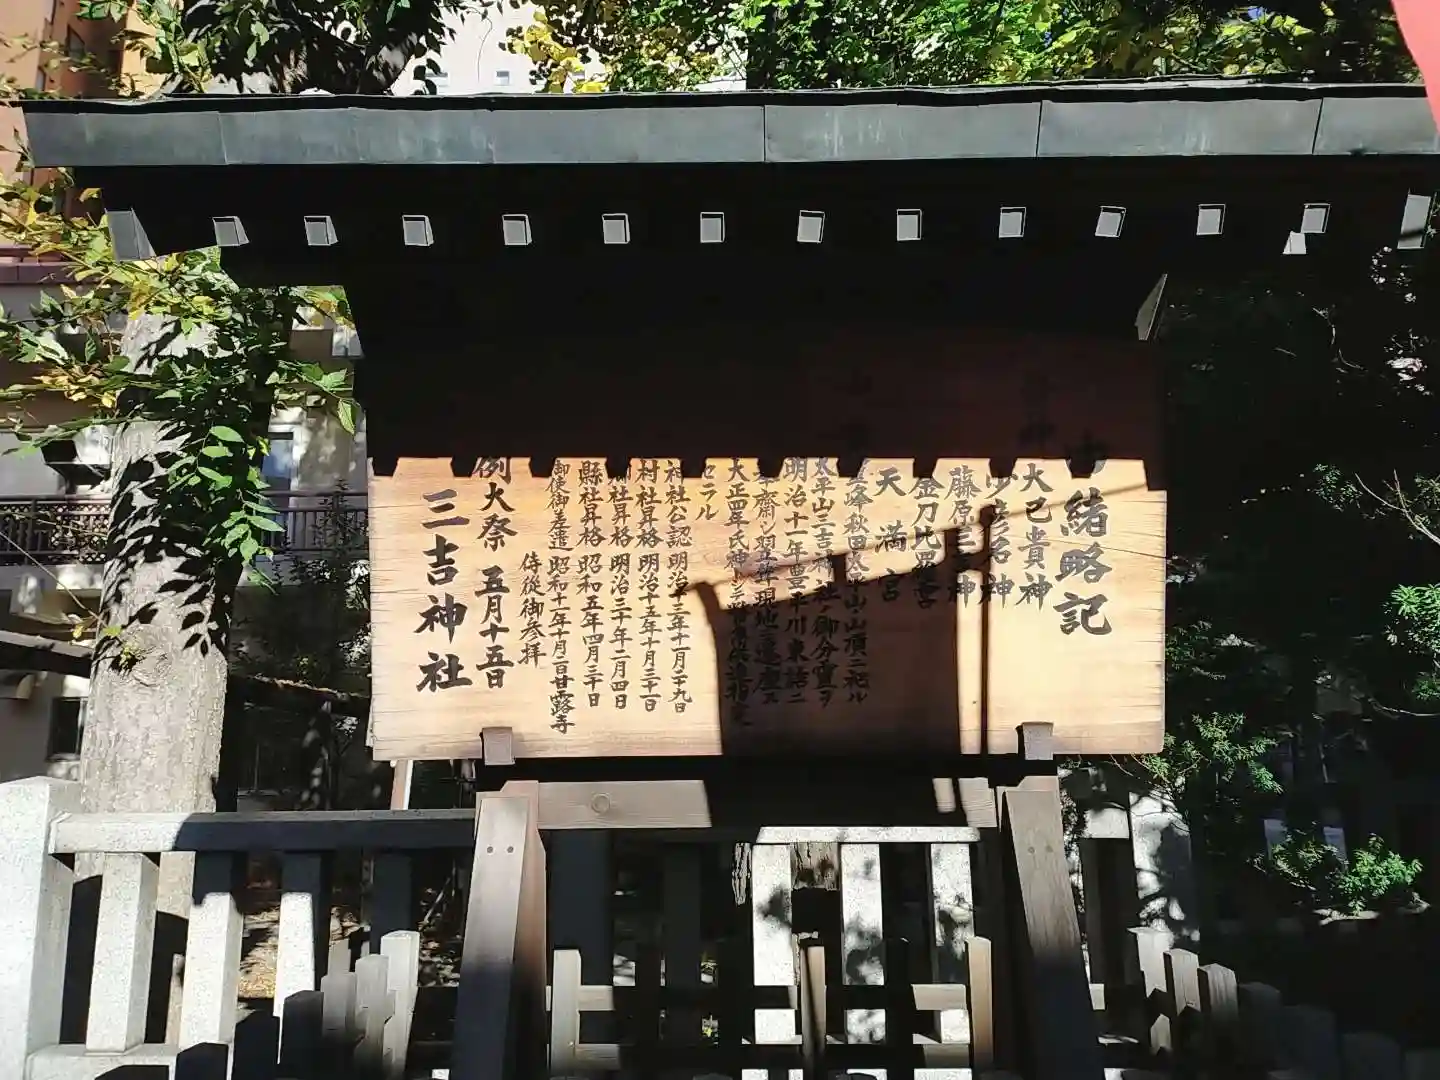 由緒略記
大己貴神
少彦名神
藤原三吉神
金刀比羅宮
天満宮
霊峰秋田太平山山頂ニ祀ル
太平山三吉神社ノ御分霊ヲ
明治十一年豊平川東詰ニ
現地ニ遷座ス
大正四年氏神
セラル
神社公認 明治十三年十一月廿九日
村社昇格 明治十五年十月三十一日
郷社昇格 明治三十年二月四日
縣社昇格 昭和五年四月三十日
御使御差遣 昭和十一年十月二日甘露寺
侍従御参拝
例大祭 五月十五日
三吉神社